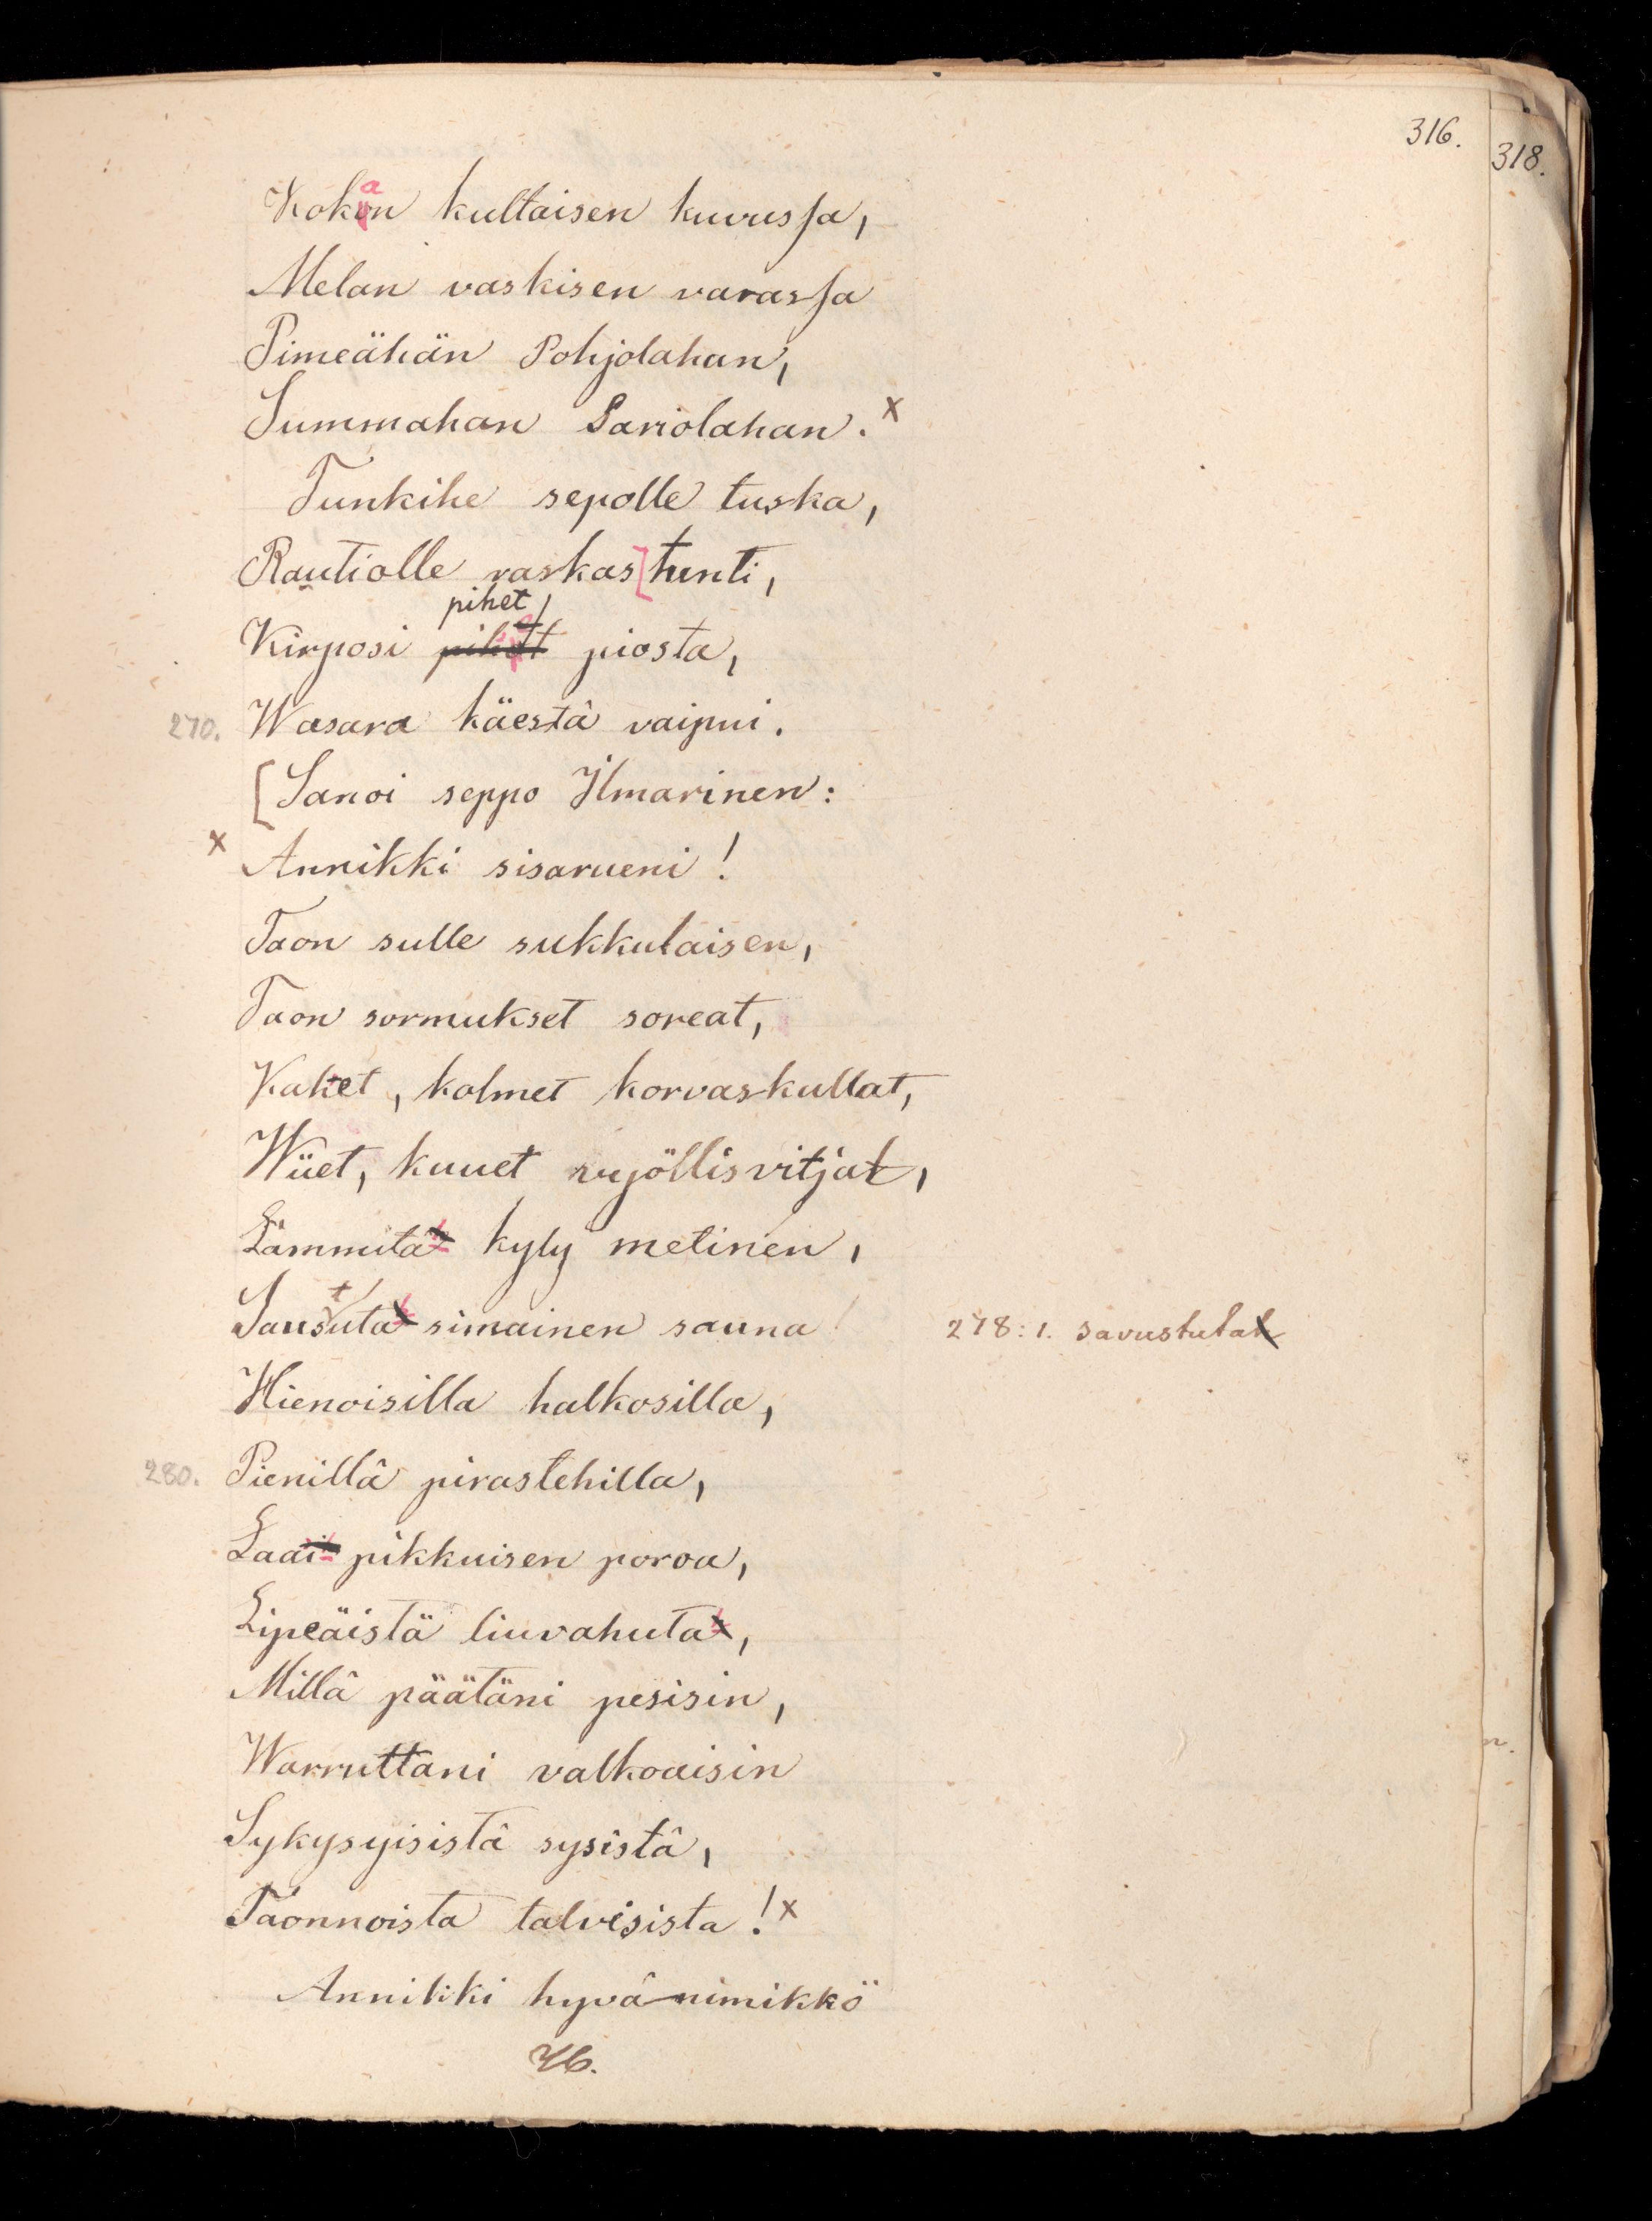 316.
318.
a
Kokon kultaisen kuvussa,
Melan vaskisen varassa
Pimeähän Pohjolahan,
Summahan Sariolahan. x
Tunkihe sepolle tuska,
Rautiolle raskas [tunti,
pihet
Kirposi pihdit piosta,
270. Wasara käestä vaipui.
[Sanoi seppo Ilmarinen:
x Annikki sisarueni!
Taon sulle sukkulaisen,
Taon sormukset soreat,
Kaket, kolmet korvaskullat,
Wiiet, kuuet vyöllisvitjat,
Lämmitä kyly metinen,
t
Sausuta simainen sauna
278:1. savustutat
Hienoisilla halkosilla,
280. Pienillä pirastehilla,
Laai pikkuisen poroa,
Lipeäistä liuvahuta,
Millä päätäni pesisin,
Warruttani valkoaisin
Sykysyisistä sysistä,
Taonnoista talvisista! x
Annikki hyvä nimikkö
46.